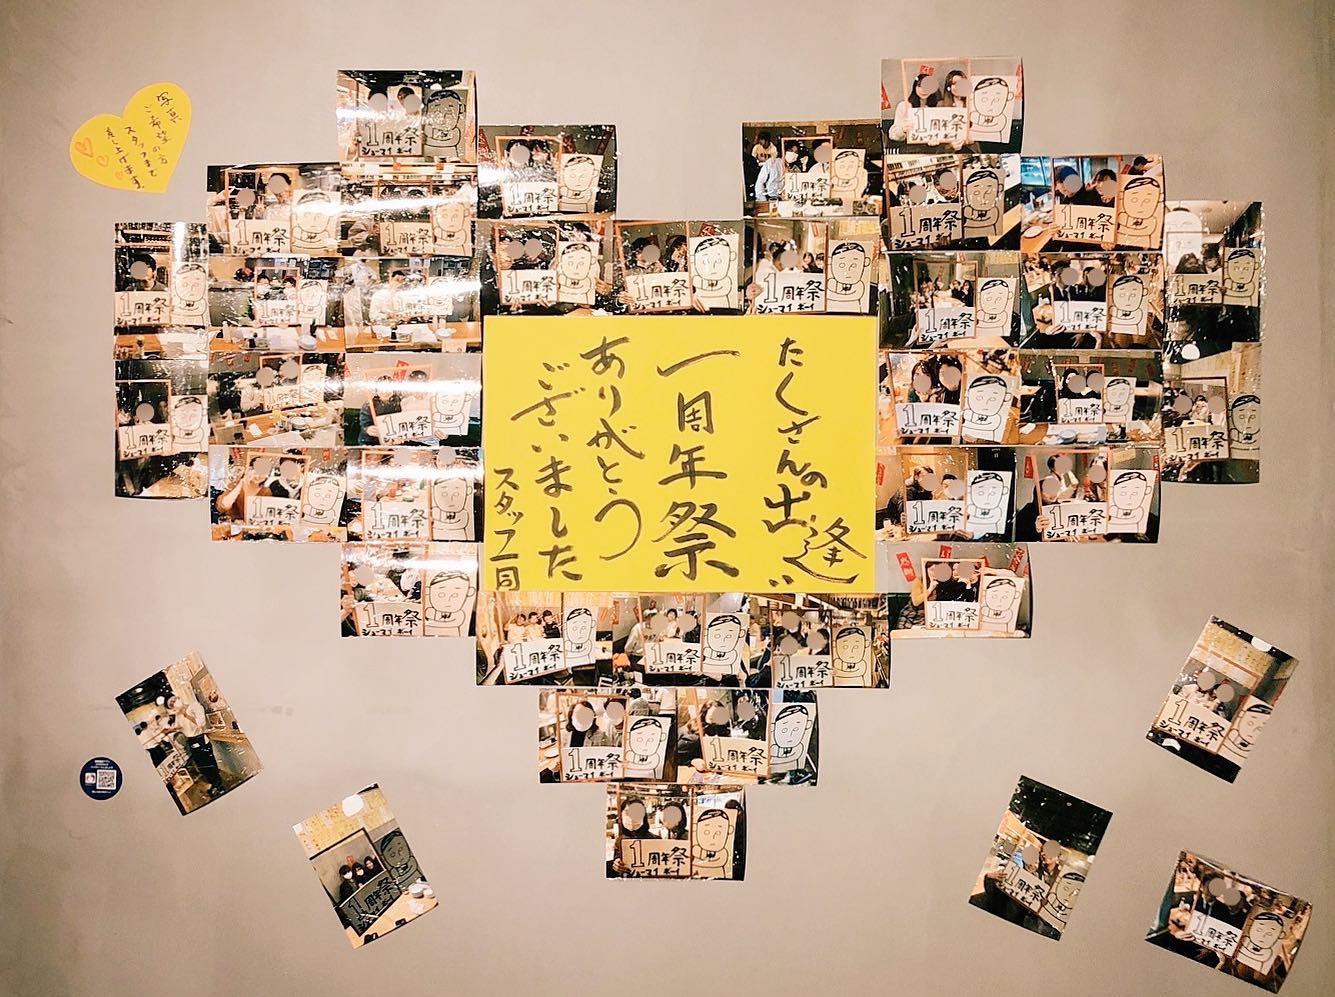 たくさんの出逢い
一周年祭
ありがとう
ございました
スタッフ一同
写真
ご希望の方
スタッフまで
差し上げます。
1周年祭
シューマイボーイ